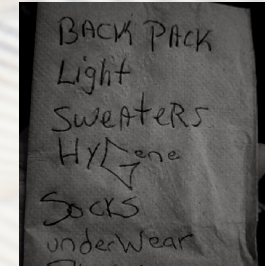 BACK PACK
Light
SweAteRS
HyGene
SOCKS
underwear